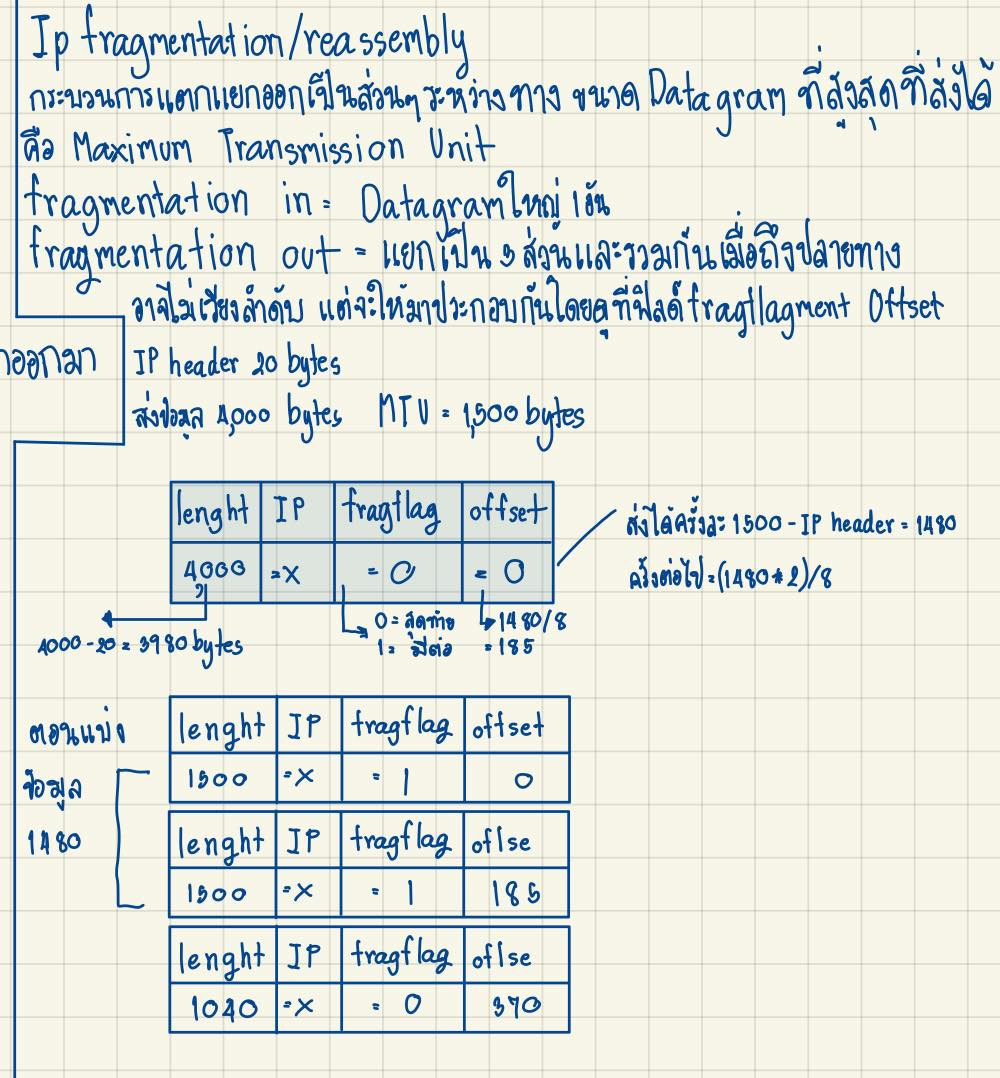 Ip fragmentation/reassembly
กระบวนการแตกแยกออกเป็นส่วนๆ ระหว่างทาง ขนาด Datagram ที่สูงสุดที่ส่งได้
คือ Maximum Transmission Unit
fragmentation in = Datagramใหญ่ 1อัน
fragmentation out = แยกเป็น 3 ส่วนและรวมกันเมื่อถึงปลายทาง
อาจไม่เรียงลำดับ แต่จะให้มาประกอบกันโดยดูที่ฟิลด์ fragflagment Offset
ออกมา
IP header 20 bytes
ส่งข้อมูล 4,000 bytes MTU = 1,500 bytes
lenght IP fragflag offset
4000 =x = 0 = 0
ส่งได้ครั้งละ 1500 - IP header = 1480
ครั้งต่อไป = (1480*2)/8
4000 - 20 = 3980 bytes
0 = สุดท้าย
1 = มีต่อ
1480/8
= 185
ตอนแบ่ง
ข้อมูล
1480
lenght IP fragflag offset
1500 =x = 1 0
lenght IP fragflag offse
1500 =x = 1 185
lenght IP fragflag offse
1040 =x = 0 370